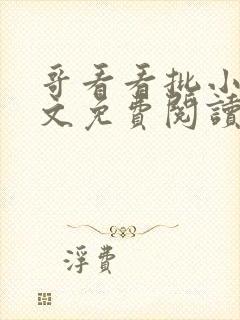 哥看看批小
文免費閱讀
浮費